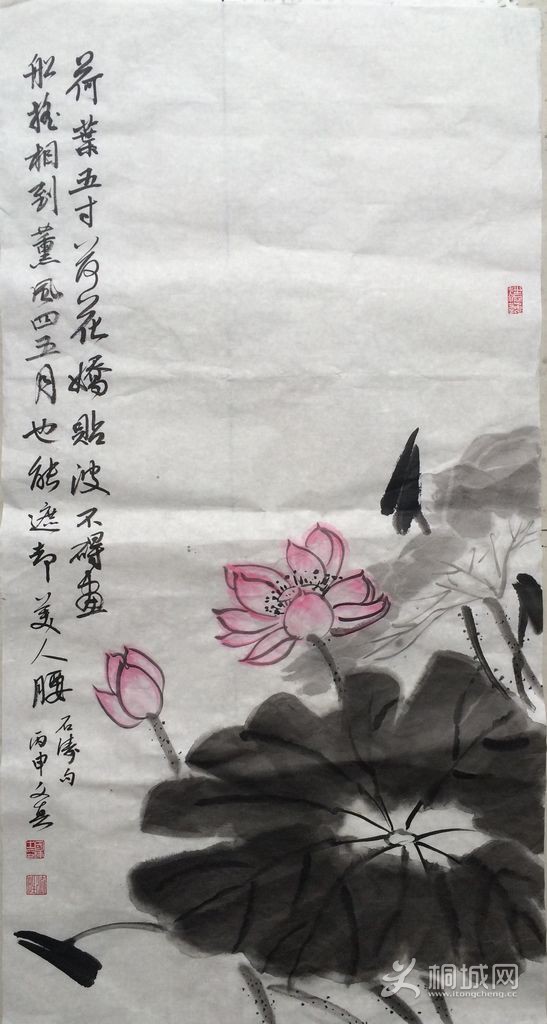 荷葉五寸荷花嬌貼波不碍畫
船搖相到薰風四五月也能遮却美人腰
石濤句
丙申文真
桐城网
www.itongcheng.cc